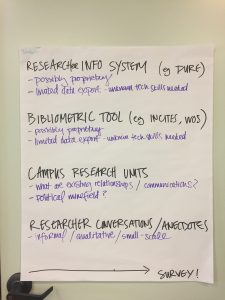 RESEARCHER INFO SYSTEM (eg PURE)
- possibly proprietary
- limited data export - unknown tech skills needed
BIBLIOMETRIC TOOL (eg INCITES, WOS)
- possibly proprietary
- limited data export - unknown tech skills needed
CAMPUS RESEARCH UNITS
- what are existing relationships / communications?
- political minefield?
RESEARCHER CONVERSATIONS / ANECDOTES
- informal / qualitative / small-scale
SURVEY!